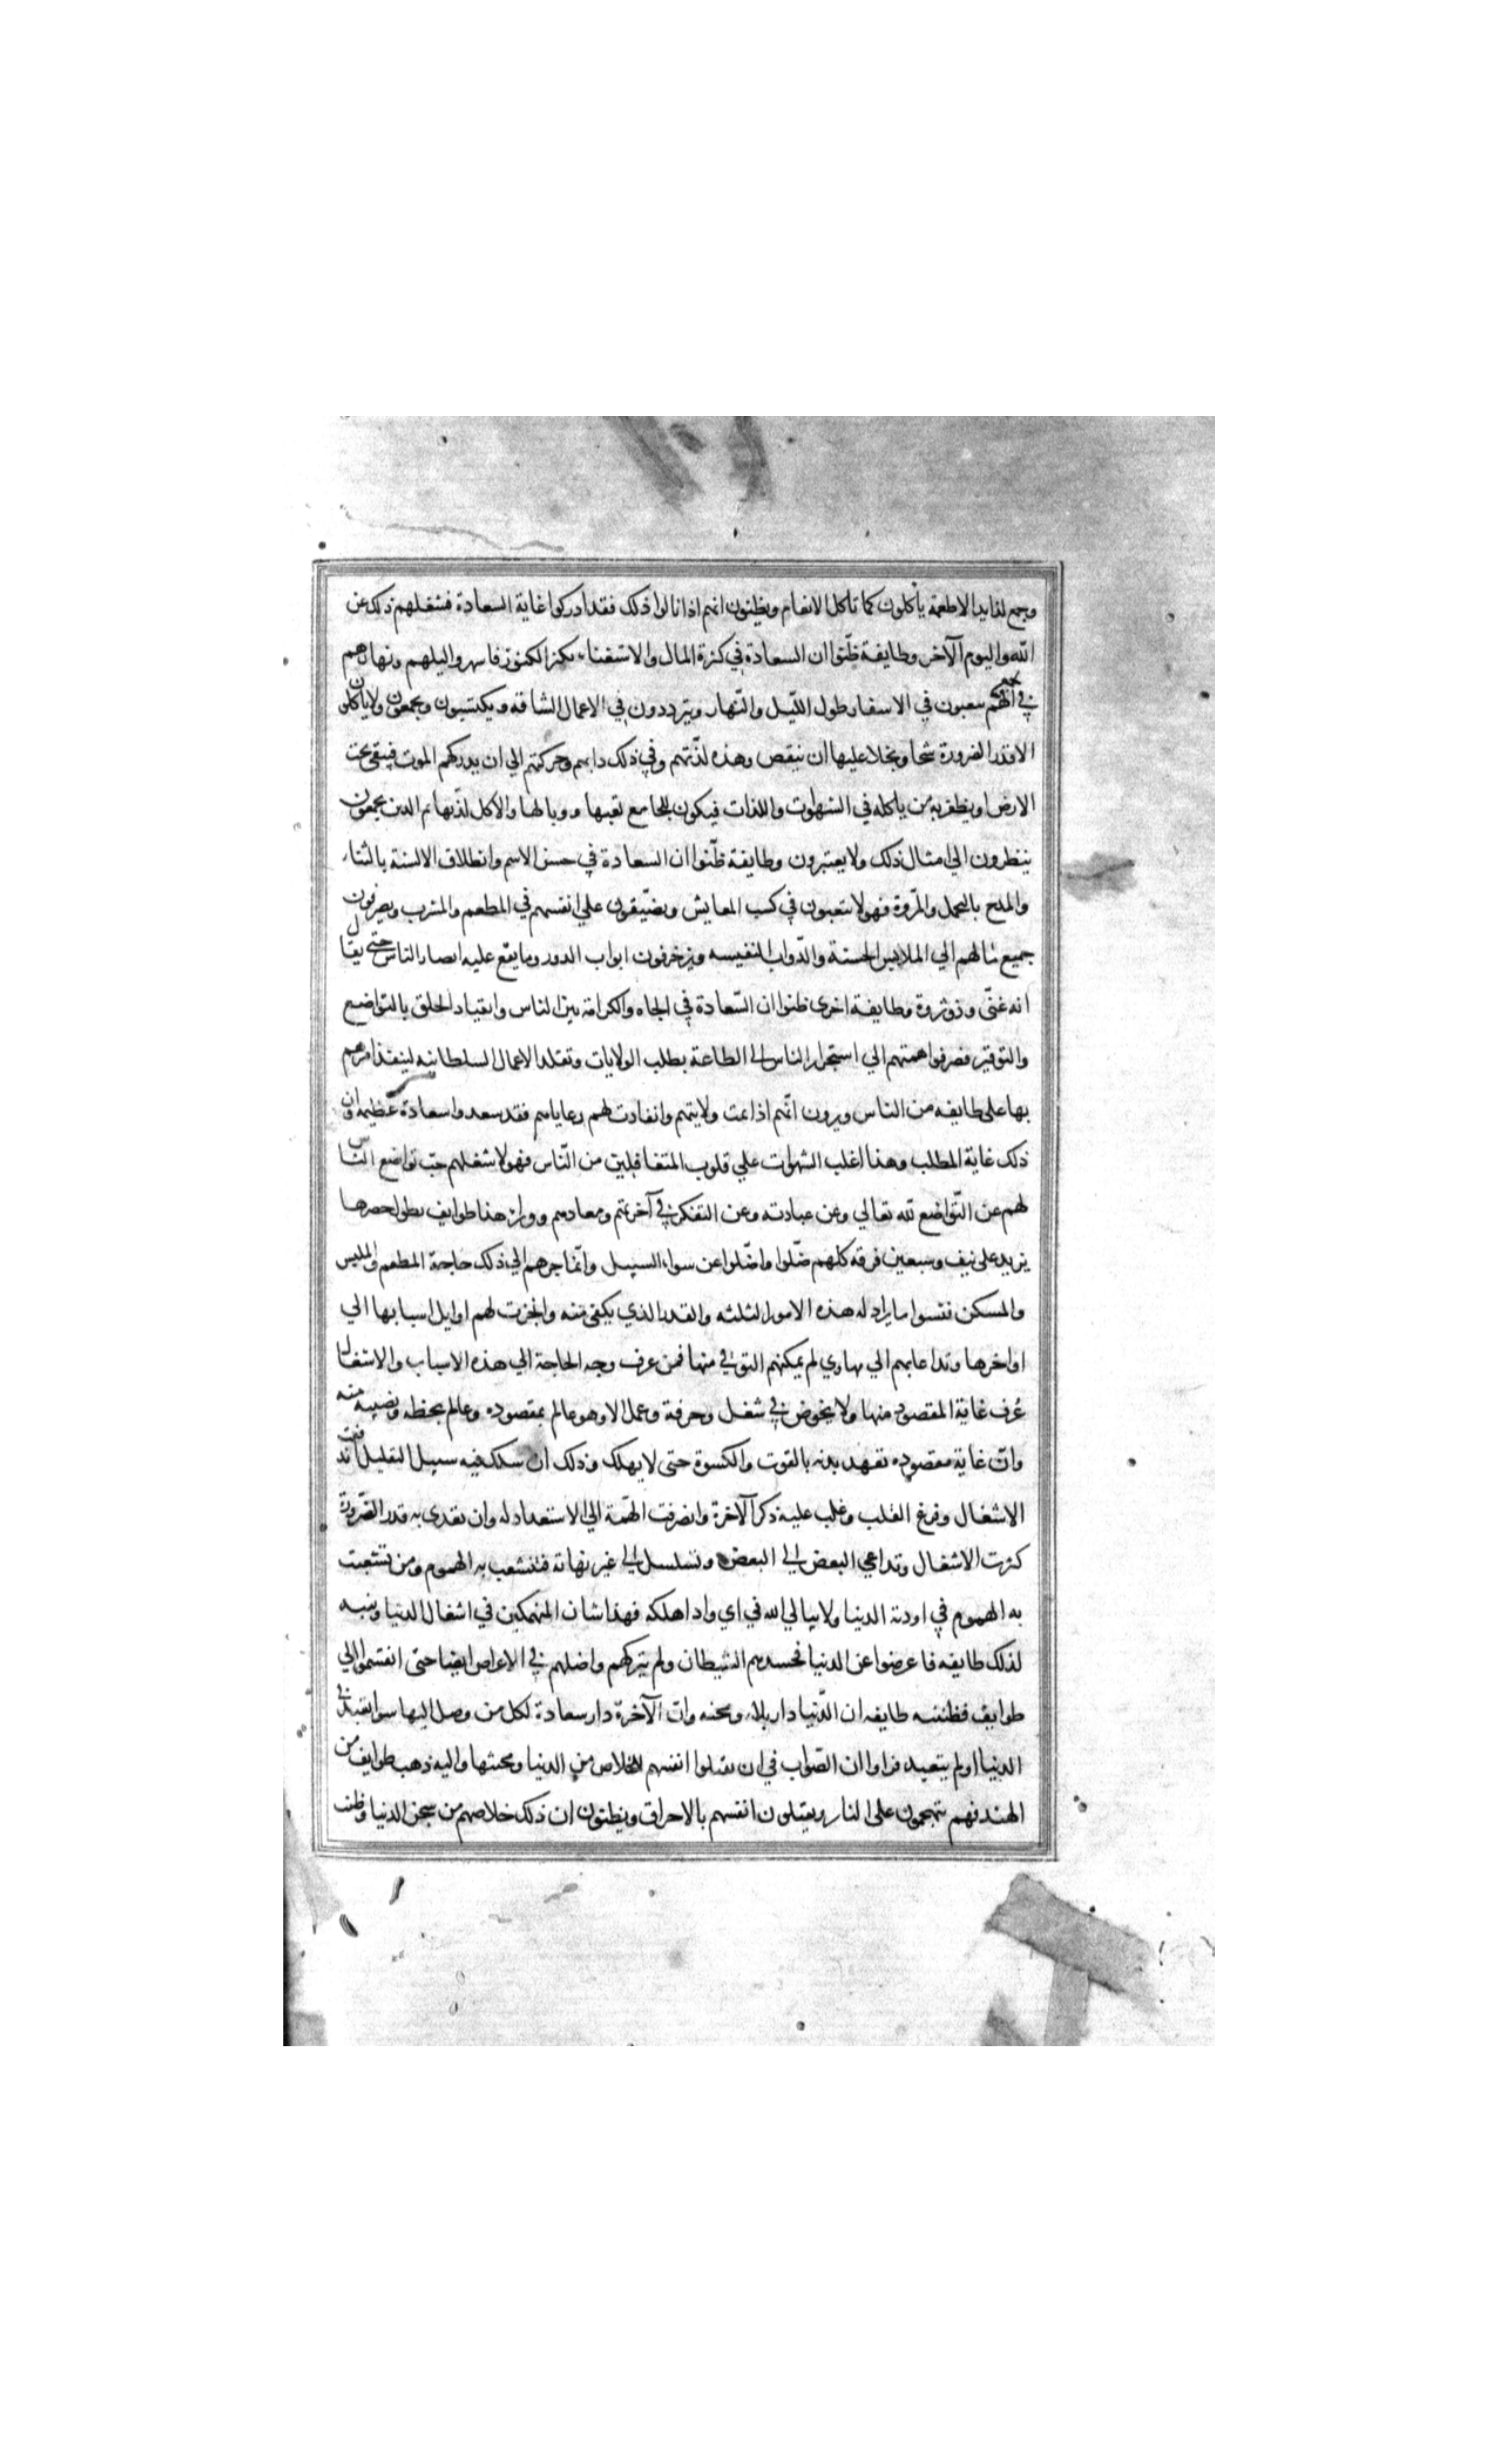 وجمع لذايد الاطعمة ياكلون كما تاكل الانعام ويظنون انهم اذا نالوا ذلك فقد ادركوا غاية السعادة فشغلهم ذلك عن
الله واليوم الآخر وطايفة ظنّوا ان السعادة في كثرة المال والاستغناء بكنز الكنوز فاسهروا ليلهم ونهارهم
في الجمع فهم يتعبون في الاسفار طول اللّيل والنّهار ويترددون في الاعمال الشاقه ويكتسبون ويجمعون ولا ياكلون
الا قدر الضرورة شحا وبخلا عليها ان ينقص وهذه لذّتهم وفي ذلك دابهم وحركتهم الي ان يدركهم الموت فيبقى تحت
الارض او يظفر به من ياكله في الشهوات واللذات فيكون للجامع تعبها ووبالها وللاكل لذّتها ثم الذين يجمعون
ينظرون الي امثال ذلك ولا يعتبرون وطايفة ظنّوا ان السعادة في حسن الاسم وانطلاق الالسنة بالثناء
والمدح بالتجمل والمروّة فهولا يتعبون في كسب المعايش ويضيّقون علي انفسهم في المطعم والمشرب ويصرفون
جميع مالهم الي الملابس الحسنة والدّواب النفيسه ويزخرفون ابواب الدور وما يقع عليه ابصار الناس حتى يقال
انه غنيّ وذو ثروة وطايفة اخرى ظنوا ان السّعادة في الجاه والكرامة بين الناس وانقياد الخلق بالتواضع
والتوقير فصرفوا همتهم الي استجرار الناس الى الطاعة بطلب الولايات وتقلد الاعمال السلطانيه لينفذ امرهم
بها على طايفه من الناس ويرون انّهم اذا تمت ولايتهم وانقادت لهم رعاياهم فقد سعدوا سعادة عظيمة وان
ذلك غاية المطلب وهذا اغلب الشهوات علي قلوب المتغافلين من النّاس فهولا شغلهم حبّ تواضع النّاس
لهم عن التّواضع لله تعالي وعن عبادته وعن التفكر في آخرتهم ومعادهم وورا هذا طوايف يطول حصرها
يزيد على نيف وسبعين فرقه كلهم ضّلوا واضّلوا عن سواء السبيل وانّما جرهم الي ذلك حاجة المطعم والملبس
والمسكن فنسوا ما يراد له هذه الامور الثلثه والقدر الذي يكفى منه وانجرت لهم اوايل اسبابها الي
اواخرها وتداعابهم الي مهاوي لم يمكنهم الترقي منها فمن عرف وجه الحاجة الي هذه الاسباب والاشغال
عُرف غاية المقصود منها ولا يخوض في شغل وحرفة وعمل الا وهو عالم بمقصوده وعالم بحظه ونصيبه منه
وانّ غاية مقصوده تعهد بدنه بالقوت والكسوة حتى لا يهلك وذلك ان سلك فيه سبيل التقليل اندفعت
الاشغال وفرغ القلب وغلب عليه ذكر الآخرة وانصرفت الهّمة الي الاستعداد له وان تعدى به قدر الضّرورة
كثرت الاشغال وتداعي البعض الى البعض وتسلسل الى غير نهاية فتتشعب به الهموم ومن تشعبت
به الهموم في اودية الدنيا ولا يبالي الله في اي واد اهلكه فهذا شان المنهمكين في اشغال الدنيا وتنبه
لذلك طايفه فاعرضوا عن الدنيا فحسدهم الشيطان ولم يتركهم واضلهم في الاعراض ايضا حتى انقسموا الي
طوايف فظننه طايفه ان الدّنيا دار بلاء ومحنه وانّ الآخرة دار سعادة لكل من وصل اليها سوا تعبد في
الدنيا او لم يتعبد فراوا ان الصّواب في ان يقتلوا انفسهم للخلاص من الدنيا ومحنتها واليه ذهب طوايف من
الهند فهم يتهجمون على النار ويقتلون انفسهم بالاحراق ويظنون ان ذلك خلاصهم من سجن الدنيا وظنت